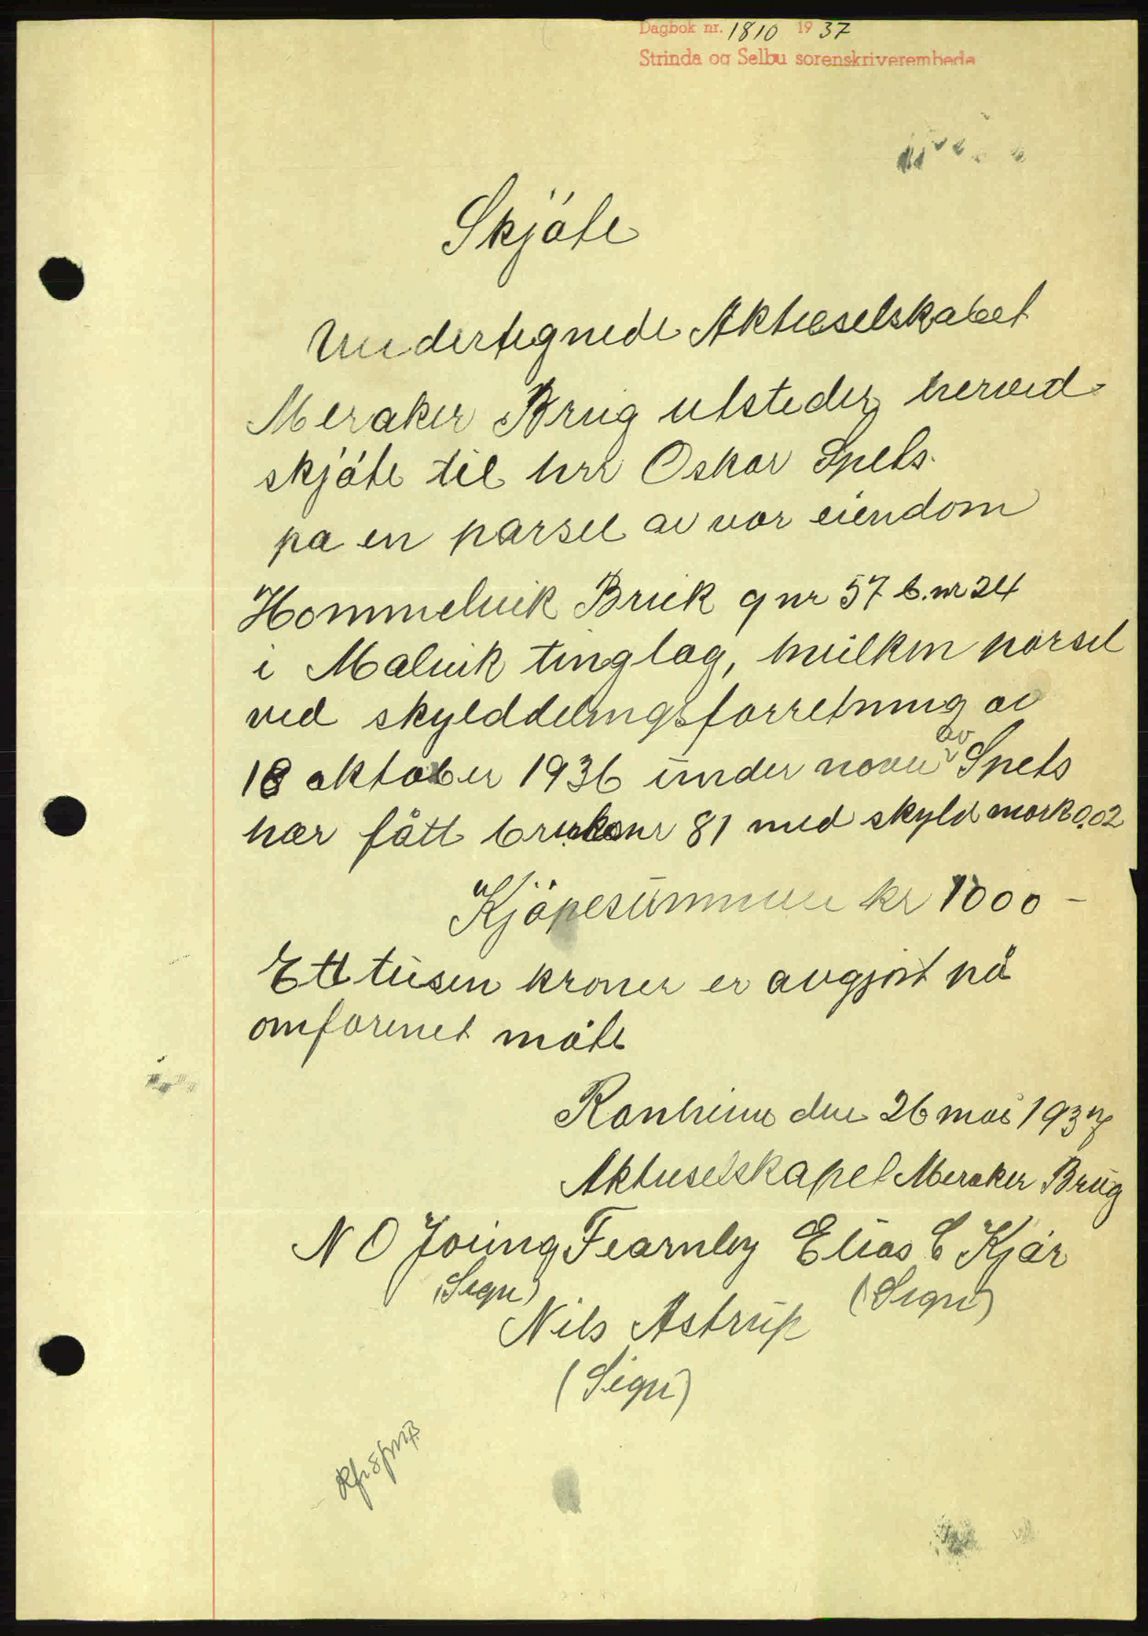 Dagbok nr. 1810 1937
Strinda og Selbu sorenskriverembede
Skjóte
Undertegnede Aktieselskabet
Meraker Brug utsteder herved
skjóte til hrr Oskar Spets
pa en parsel av vor eiendom
Hommelvik Bruk gnr 57 b.nr 24
i Malvik tinglag, hvilken parsel
ved skylddelingsforretning av
18 oktober 1936 under navn av Spets
har fått bruksnr 81 med skyld mark 0.02
Kjöpesummen kr 1000 -
Ett tusen kroner er avgjort på
omforenet måte
Ranheim den 26 mai 1937
Aktieselskapet Meraker Brug
N O Young Fearnley Elias C Kjär
(Sign) (Sign)
Nils Astrup
(Sign)